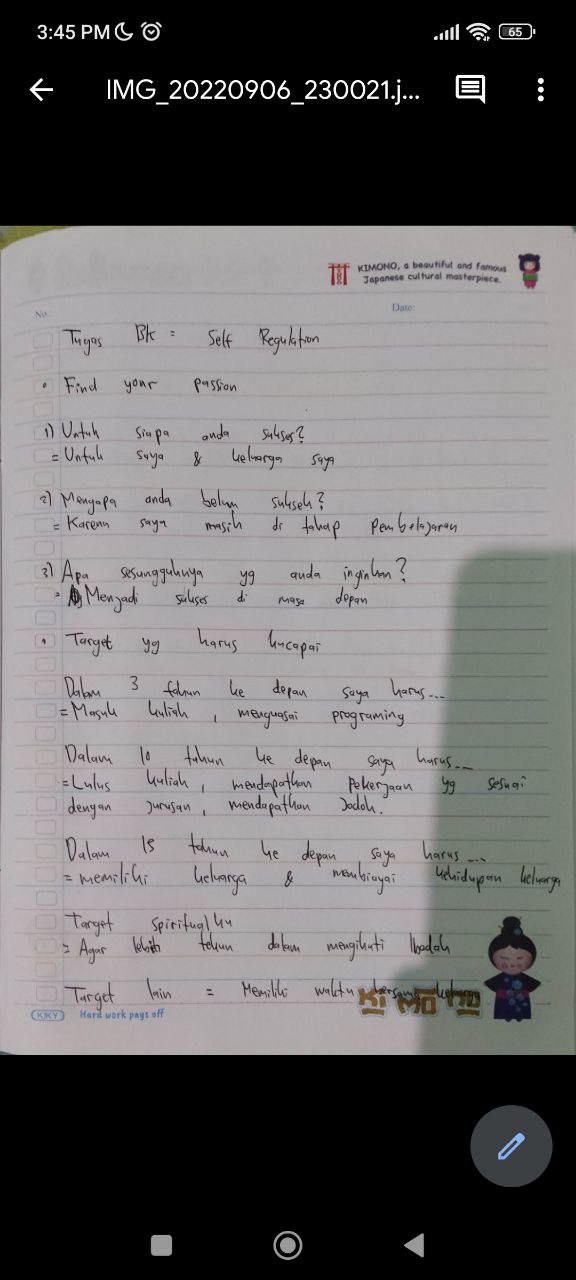 3:45 PM
65
IMG_20220906_230021.j...
KIMONO, a beautiful and famous
Japanese cultural masterpiece.
No.
Date:
Tugas BK = Self Regulation
• Find your passion
1) Untuk siapa anda sukses?
= Untuk saya & keluarga saya
2) Mengapa anda belum sukseh?
= Karena saya masih di tahap pembelajaran
3) Apa sesungguhnya yg anda inginkan?
= Menjadi sukses di masa depan
• Target yg harus kucapai
Dalam 3 tahun ke depan saya harus...
= Masuk kuliah, menguasai programing
Dalam 10 tahun ke depan saya harus...
= Lulus kuliah, mendapatkan pekerjaan yg sesuai
dengan jurusan, mendapatkan Jodoh.
Dalam 15 tahun ke depan saya harus...
= memiliki keluarga & membiayai kehidupan keluarga
Target spiritualku
= Agar lebih tekun dalam mengikuti Ibadah
Target lain = Memiliki waktu bersama keluarga
KIMONO
KIKY
Hard work pays off